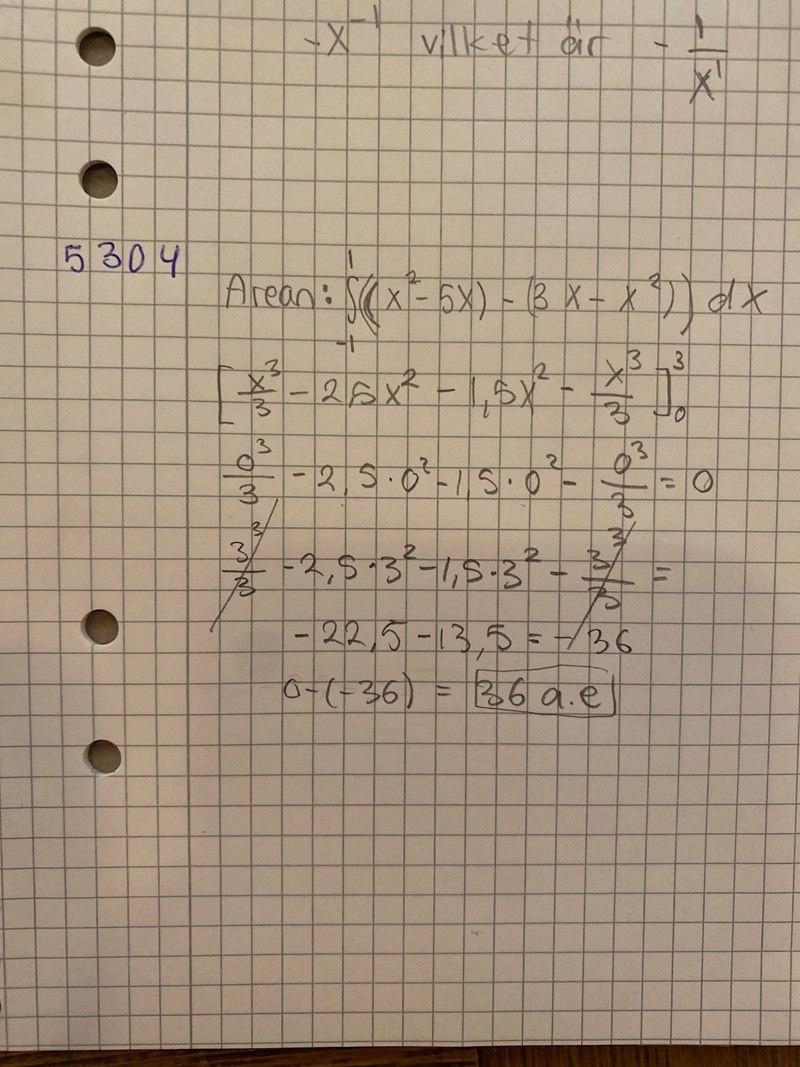 -x⁻¹ vilket är - 1/x¹
5304
Arean: ∫₋₁¹((x²-5x)-(3x-x²))dx
[x³/3 - 2,5x² - 1,5x² - x³/3]₀³
0³/3 - 2,5·0² - 1,5·0² - 0³/3 = 0
3³/3 - 2,5·3² - 1,5·3² - 3³/3 =
-22,5 - 13,5 = -36
0-(-36) = 36 a.e